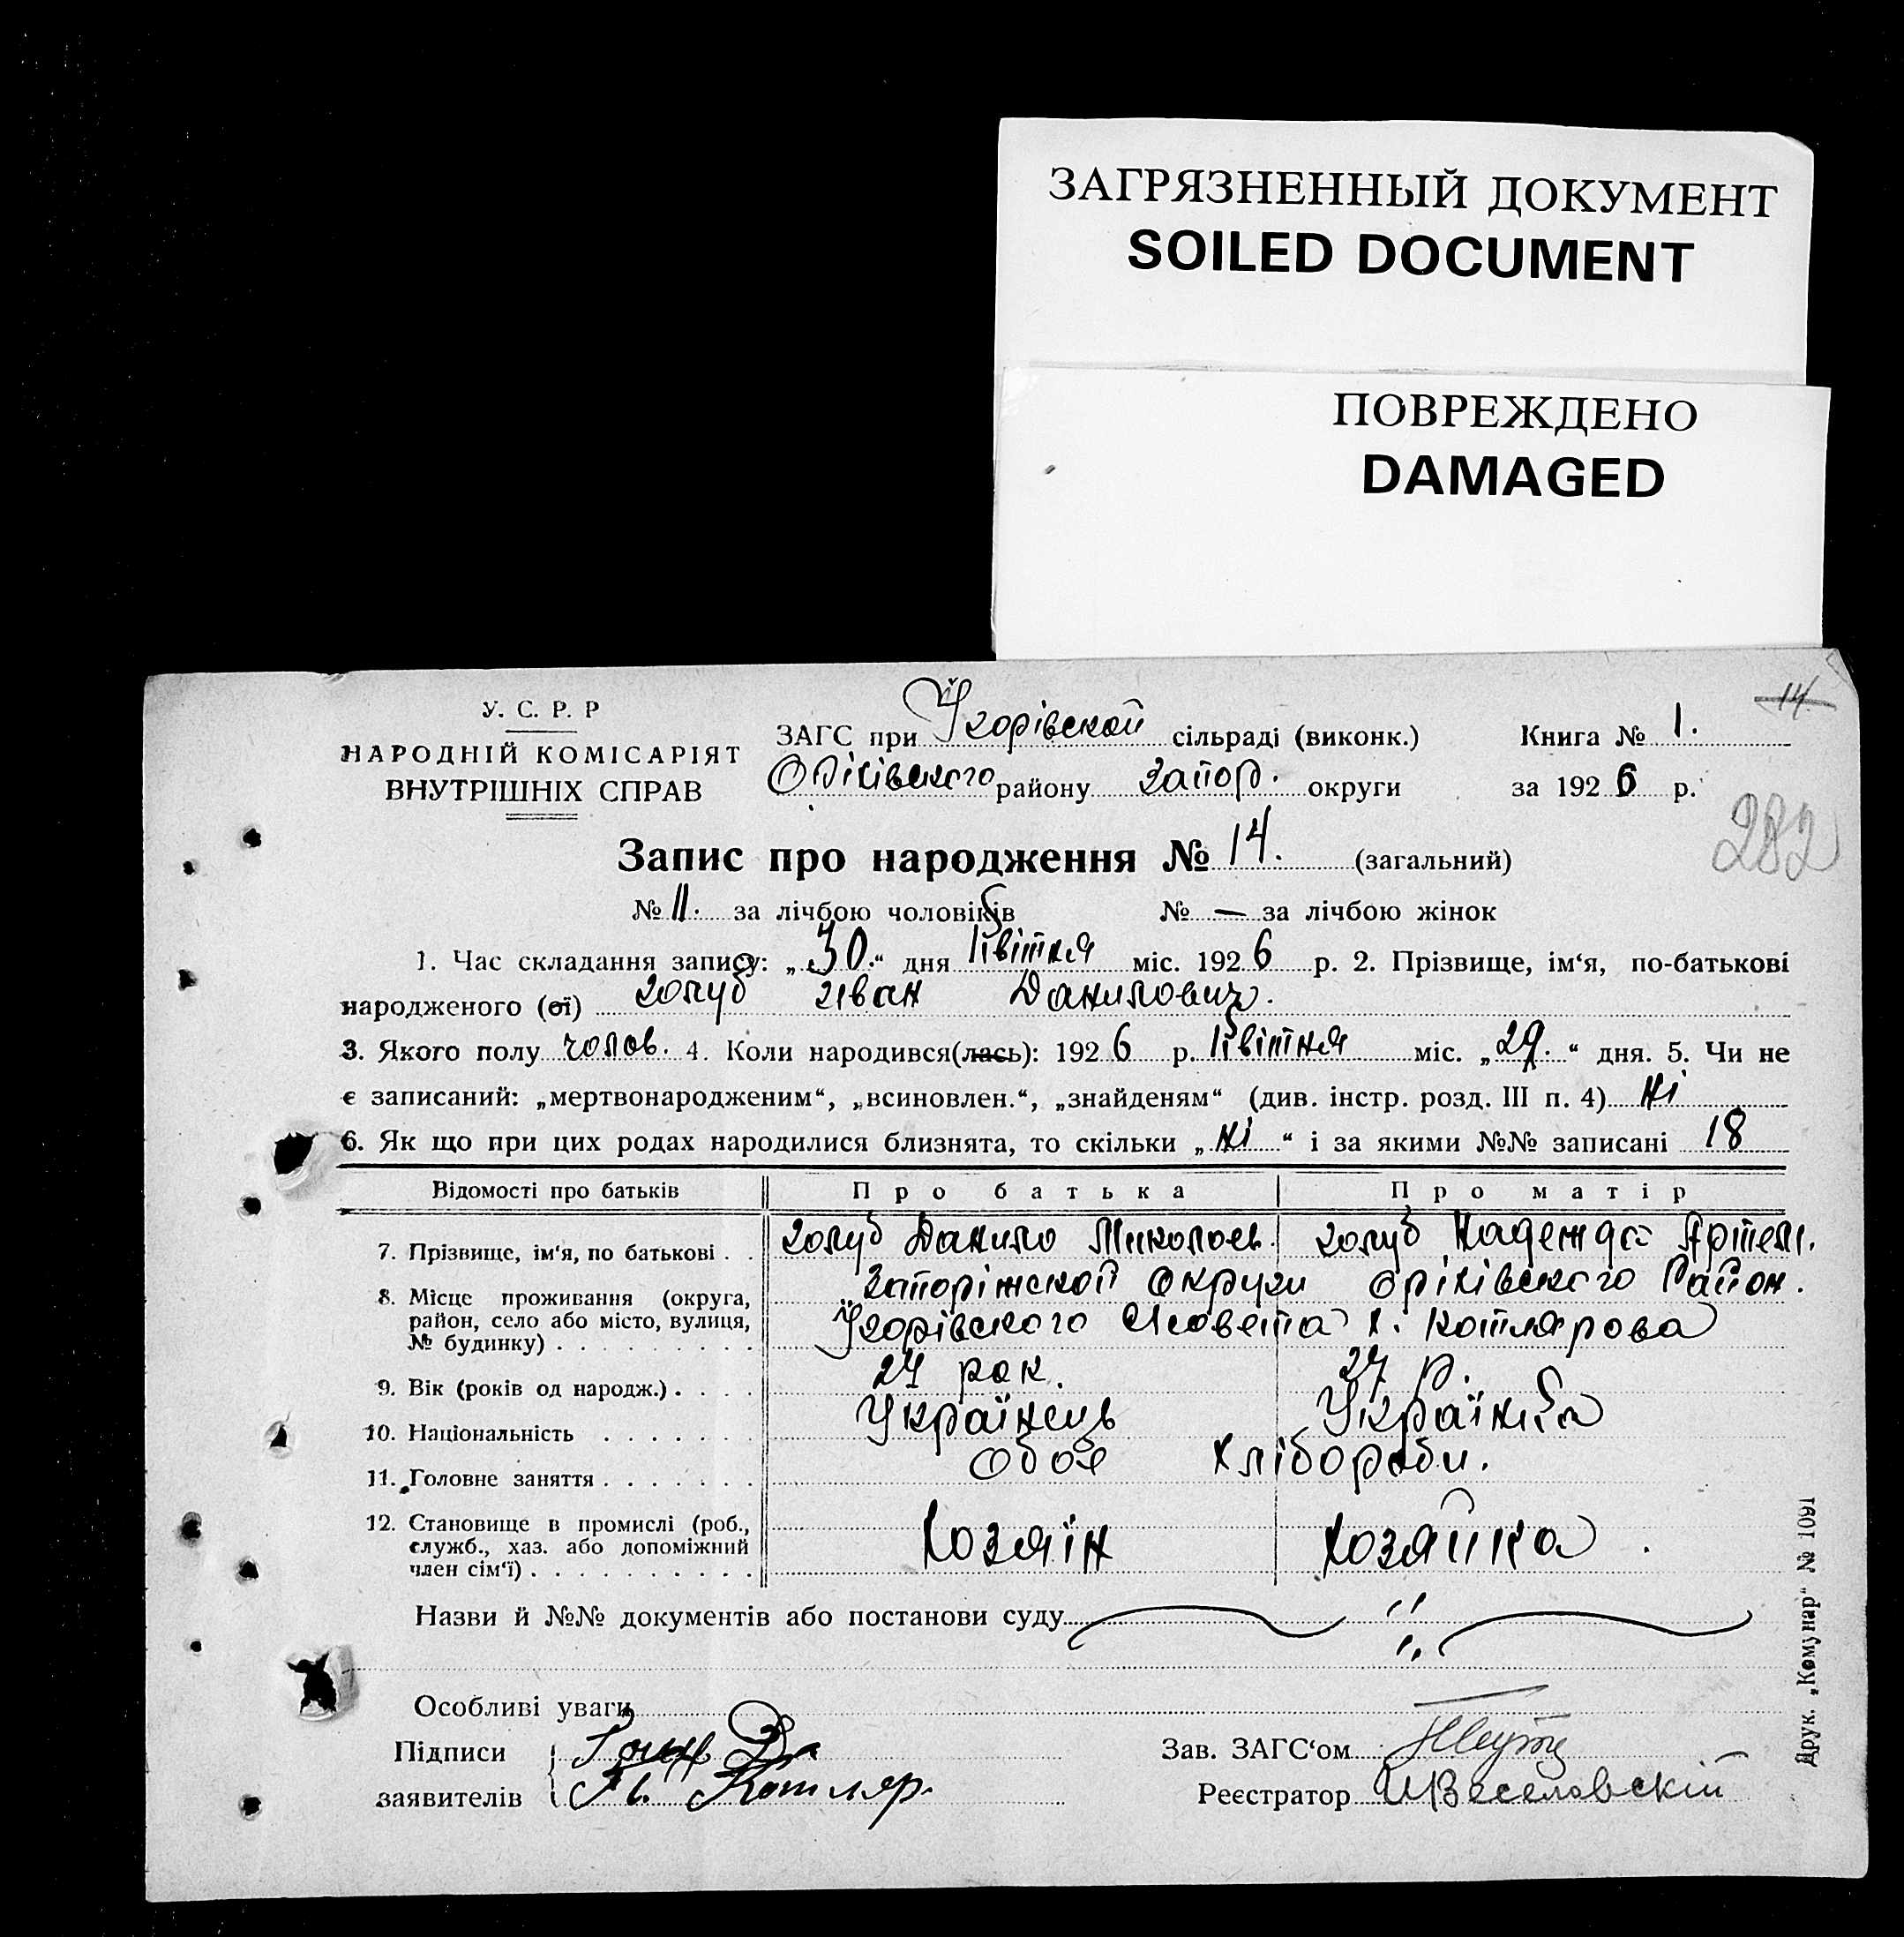 ЗАГРЯЗНЕННЫЙ ДОКУМЕНТ
SOILED DOCUMENT
ПОВРЕЖДЕНО
DAMAGED
14.
У. С. Р. Р
НАРОДНІЙ КОМІСАРІЯТ
ВНУТРІШНІХ СПРАВ
ЗАГС при Їгорівской сільраді (виконк.) Книга № 1.
Оріхівского району Запор. округи за 1926 р.
282
Запис про народження № 14. (загальний)
№ 11. за лічбою чоловіків № — за лічбою жінок
1. Час складання запису: „30.“ дня Квітня міс. 1926 р. 2. Прізвище, ім‘я, по-батькові
народженого (ої) Голуб Иван Данилович.
3. Якого полу чолов. 4. Коли народився(лась): 1926 р. Квітня міс. „29.“ дня. 5. Чи не
є записаний: „мертвонародженим“, „всиновлен.“, „знайденям“ (див. інстр. розд. III п. 4) Ні
6. Як що при цих родах народилися близнята, то скільки „Ні“ і за якими №№ записані 18
Відомості про батьків Про батька Про матір
7. Прізвище, ім‘я, по батькові . . Голуб Данило Миколаєв. Голуб Надежда Артем.
8. Місце проживання (округа, район, село або місто, вулиця, № будинку) Запоріжской Округи Оріхівского Район.
Їгорівского х. Котлярова
9. Вік (років од народж.) . . . . 24 рок. 24 р.
10. Національність . . . . . . . Українець Українка
11. Головне заняття . . . . . . . Обоє Хлібороби.
12. Становище в промислі (роб., служб., хаз. або допоміжний член сім‘ї) . . . . . . . . . . Хозяїн Хозяйка.
Назви й №№ документів або постанови суду
Особливі уваги
Підписи заявителів Котляр.
Зав. ЗАГС‘ом
Реєстратор ИВеселовскій
Друк. „Комунар“ № 1091